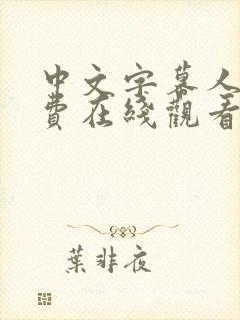 中文字幕人
費在綫觀看
葉非夜